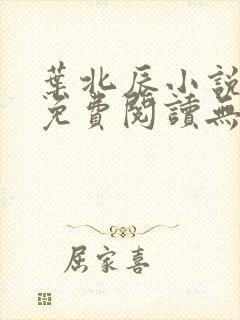 葉北辰小說
免費閱讀無
屈家喜